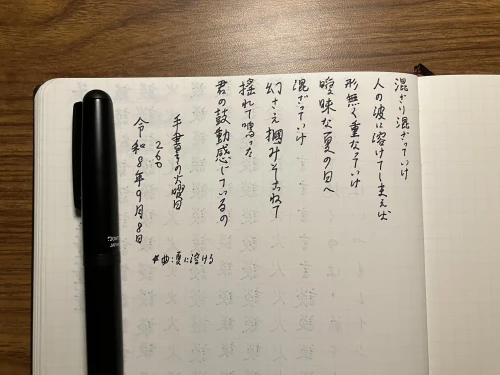 混ざり混ざっていけ
人の波に溶けてしまえば
形無く重なっていけ
曖昧な夏の日へ
混ざっていけ
幻さえ掴みそこねて
揺れて鳴った
君の鼓動感じているの
手書きの火曜日
260
令和8年9月8日
#曲:夏に溶ける